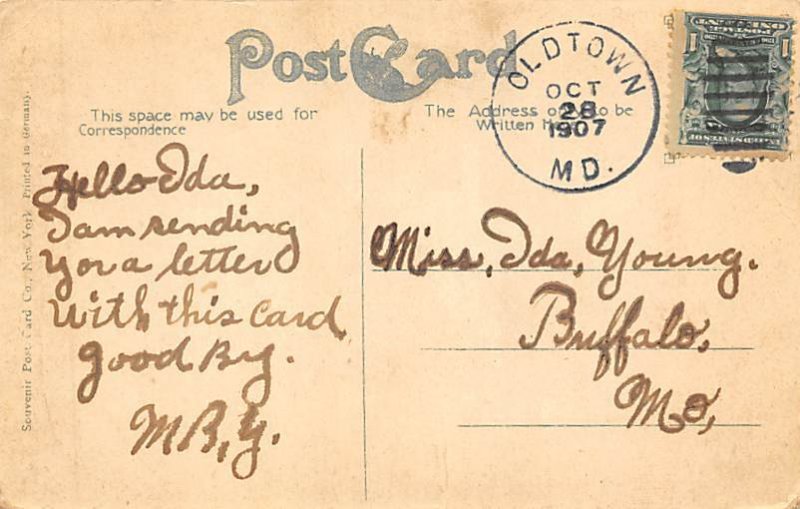 Post Card
OLDTOWN
OCT
28
1907
MD.
This space may be used for
Correspondence
The Address to be
Written
Hello Ida,
I am sending
yor a letter
With this card
good By.
M B, y.
Miss, Ida, Young.
Buffalo,
Mo,
Souvenir Post Card Co., New York Printed in Germany.
1 1